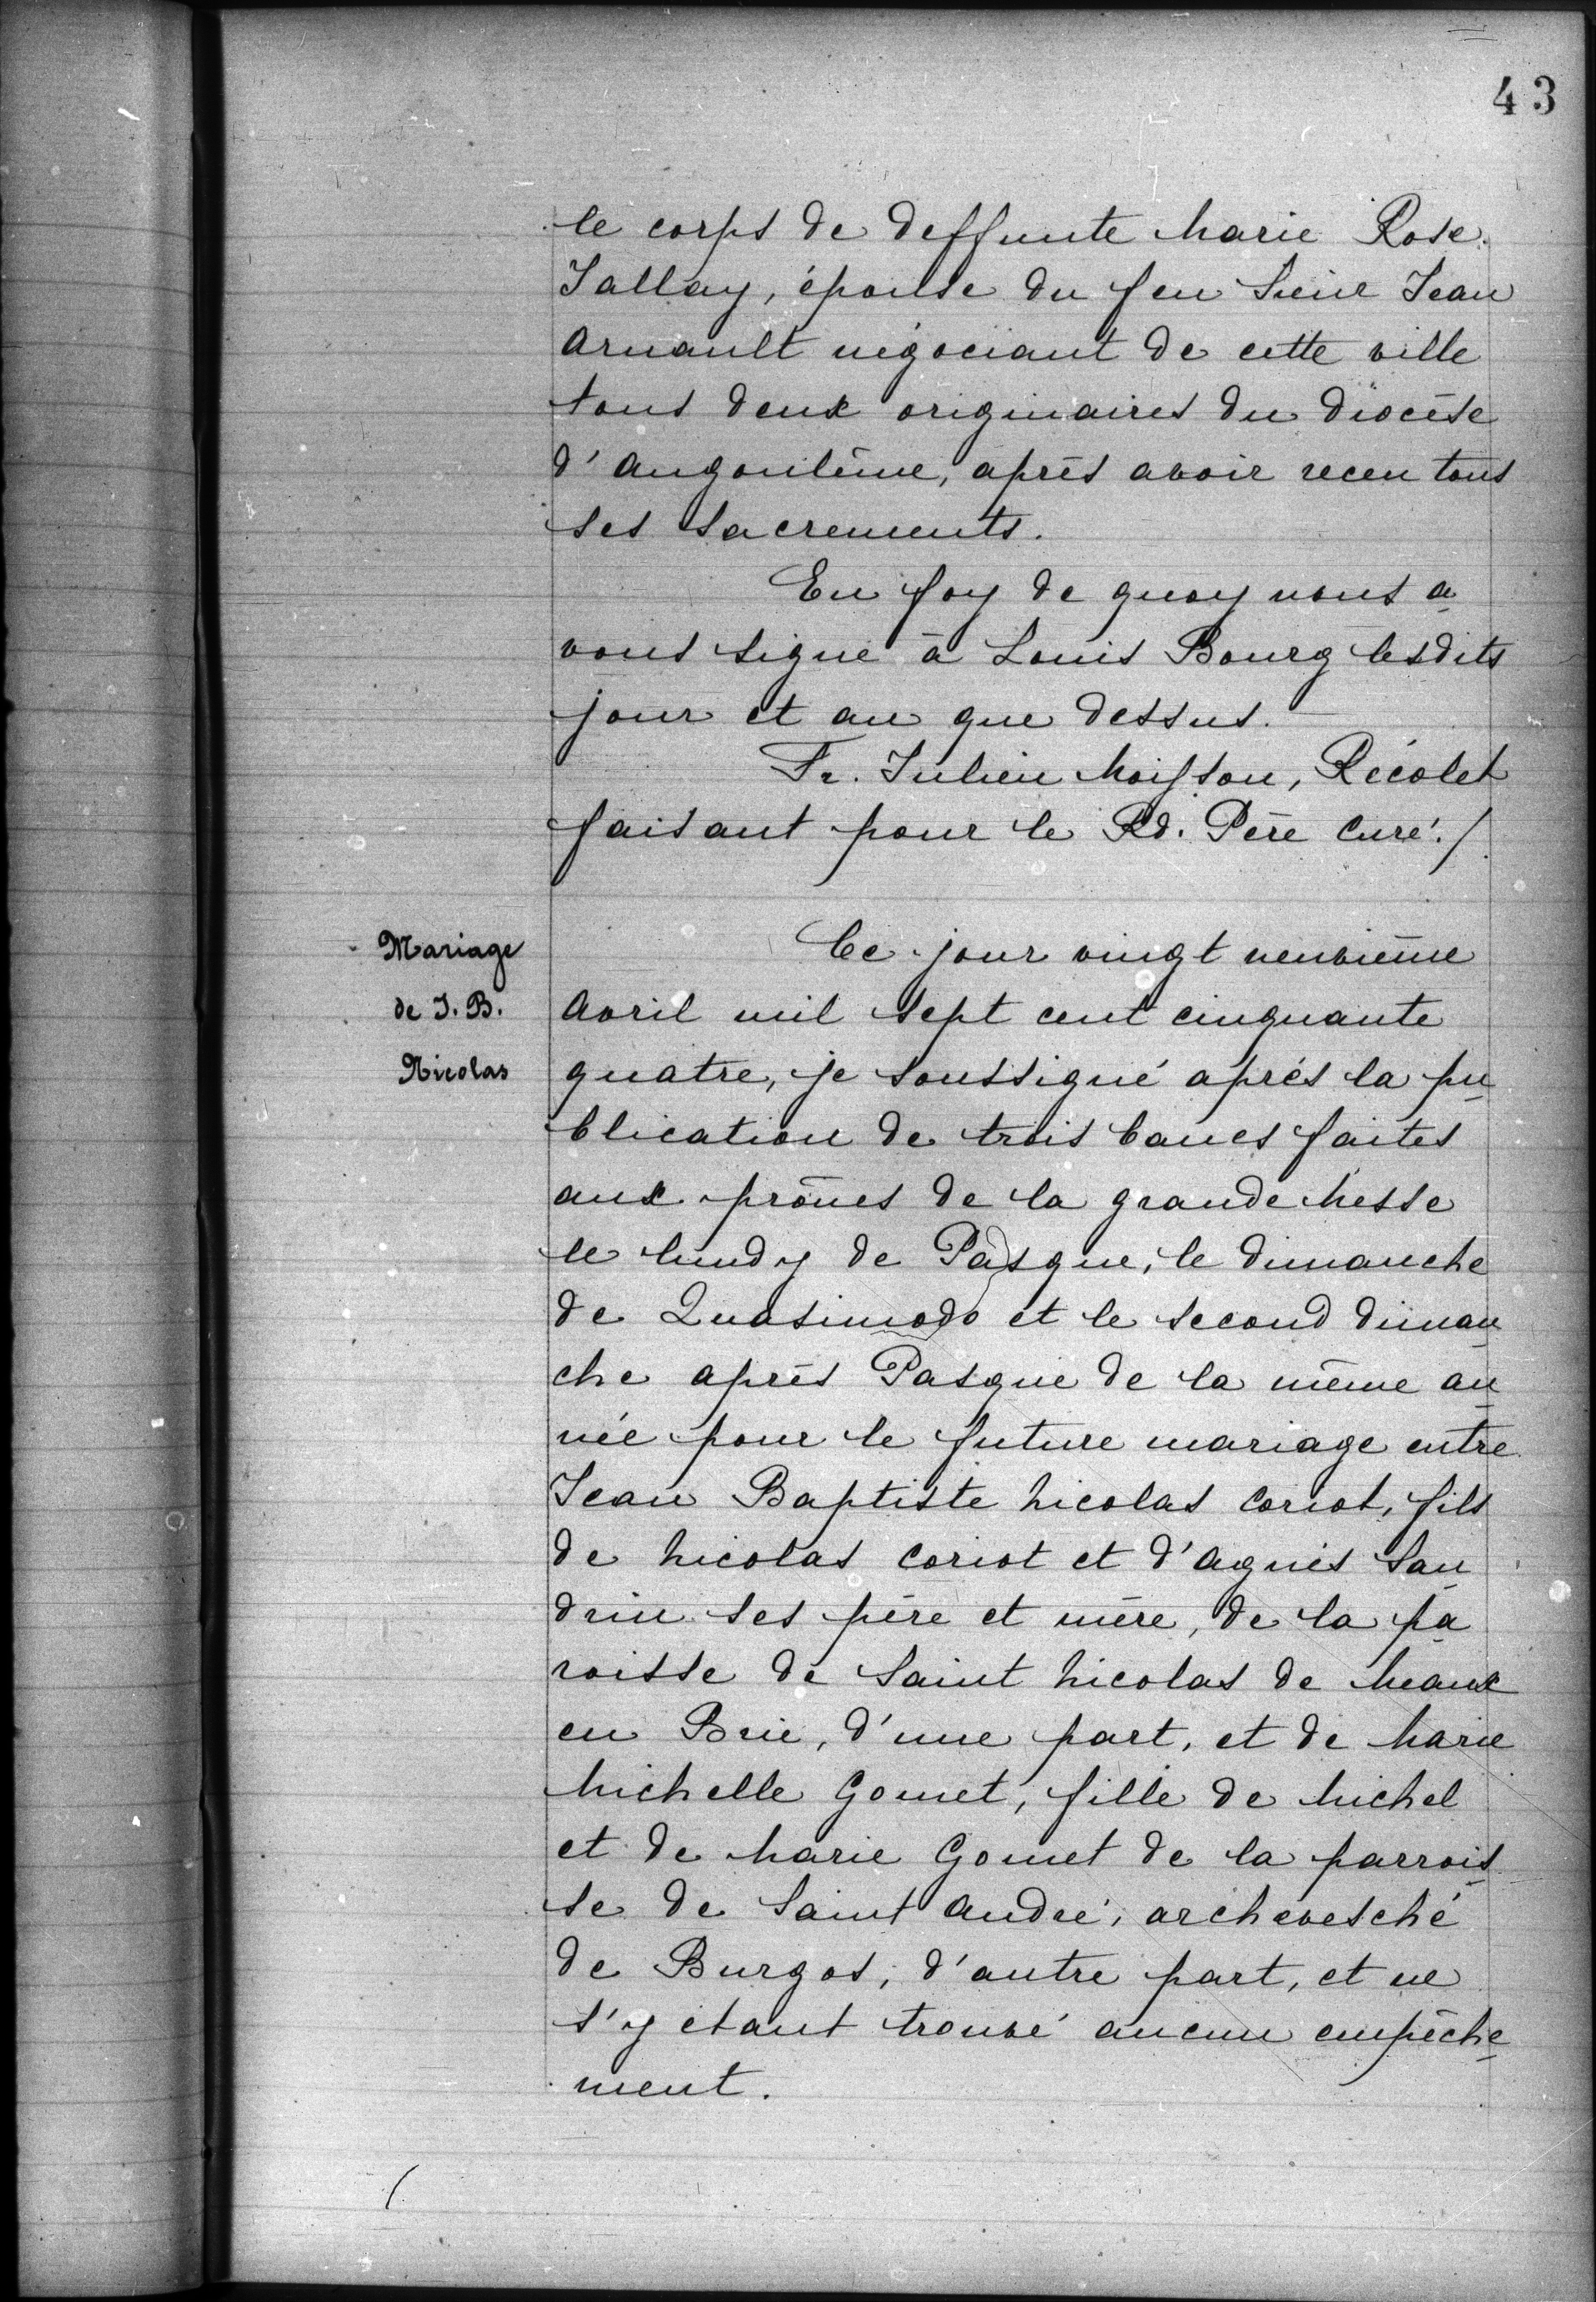 43
le corps de deffunte Marie Rose
Jallay, épouse du feu Sieur Jean
Arnault négociant de cette ville
tous deux originaires du diocèse
d'Angoulême, après avoir receu tous
ses sacrements.
En foy de quoy nous a
vons signé à Louis Bourg lesdits
jour et an que dessus.
Fr. Julien Moisson, Récolet
faisant pour le Rd. Père Curé./.
Mariage
de J. B.
Nicolas
Ce jour vingt neuvième
Avril mil sept cent cinquante
quatre, je soussigné après la pu
blication de trois bancs faites
aux prônes de la grande Messe
le lundy de Pasque, le dimanche
de Quasimodo et le second diman
che après Pasque de la même an
née pour le future mariage entre
Jean Baptiste Nicolas Coriot, fils
de Nicolas Coriot et d'Agnès San
drin ses père et mère, de la pa
roisse de Saint Nicolas de Meaux
en Brie, d'une part, et de Marie
Michelle Gomet, fille de Michel
et de Marie Gomet de la parrois
se de Saint André, archevesché
de Burgos, d'autre part, et ne
s'y étant trouvé aucun empêche
ment.